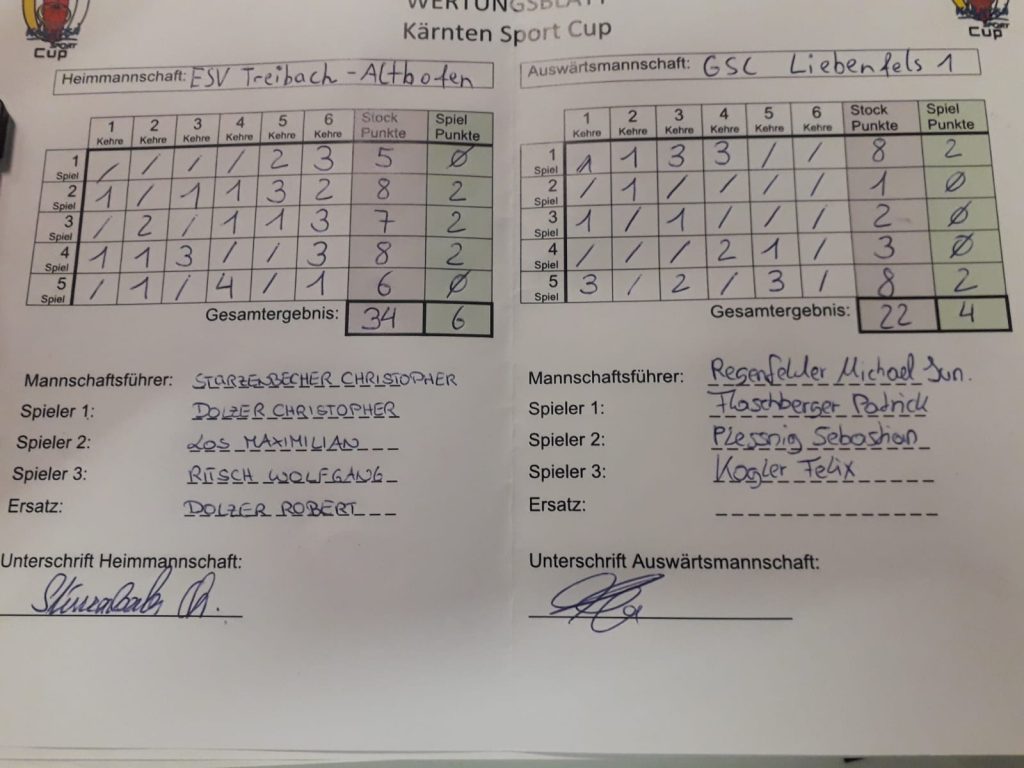 WERTUNGSBLATT
Kärnten Sport Cup
Cup
SPORT Cup
Heimmannschaft: ESV Treibach - Althofen
1 Kehre 2 Kehre 3 Kehre 4 Kehre 5 Kehre 6 Kehre Stock Punkte Spiel Punkte
1 Spiel / / / / 2 3 5 Ø
2 Spiel 1 / 1 1 3 2 8 2
3 Spiel / 2 / 1 1 3 7 2
4 Spiel 1 1 3 / / 3 8 2
5 Spiel / 1 / 4 / 1 6 Ø
Gesamtergebnis: 34 6
Mannschaftsführer: STARZENBECHER CHRISTOPHER
Spieler 1: DOLZER CHRISTOPHER
Spieler 2: LOS MAXIMILIAN
Spieler 3: RITSCH WOLFGANG
Ersatz: DOLZER ROBERT
Unterschrift Heimmannschaft:
Auswärtsmannschaft: GSC Liebenfels 1
1 Kehre 2 Kehre 3 Kehre 4 Kehre 5 Kehre 6 Kehre Stock Punkte Spiel Punkte
1 Spiel 1 1 3 3 / / 8 2
2 Spiel / 1 / / / / 1 Ø
3 Spiel 1 / 1 / / / 2 Ø
4 Spiel / / / 2 1 / 3 Ø
5 Spiel 3 / 2 / 3 / 8 2
Gesamtergebnis: 22 4
Mannschaftsführer: Regenfelder Michael Jun.
Spieler 1: Flaschberger Patrick
Spieler 2: Plessnig Sebastian
Spieler 3: Kogler Felix
Ersatz:
Unterschrift Auswärtsmannschaft: